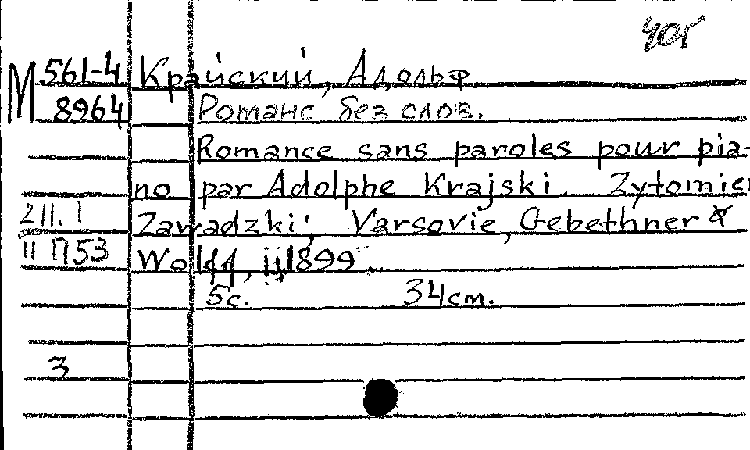 405
М 561-4 Крайский, Адольф
8964 Романс без слов.
Romance sans paroles pour pia-
no par Adolphe Krajski. Zytomier
211.1 Zawadzki; Varsovie, Gebethner &
II П53 Wolff, 1899.
5с. 34см.
3